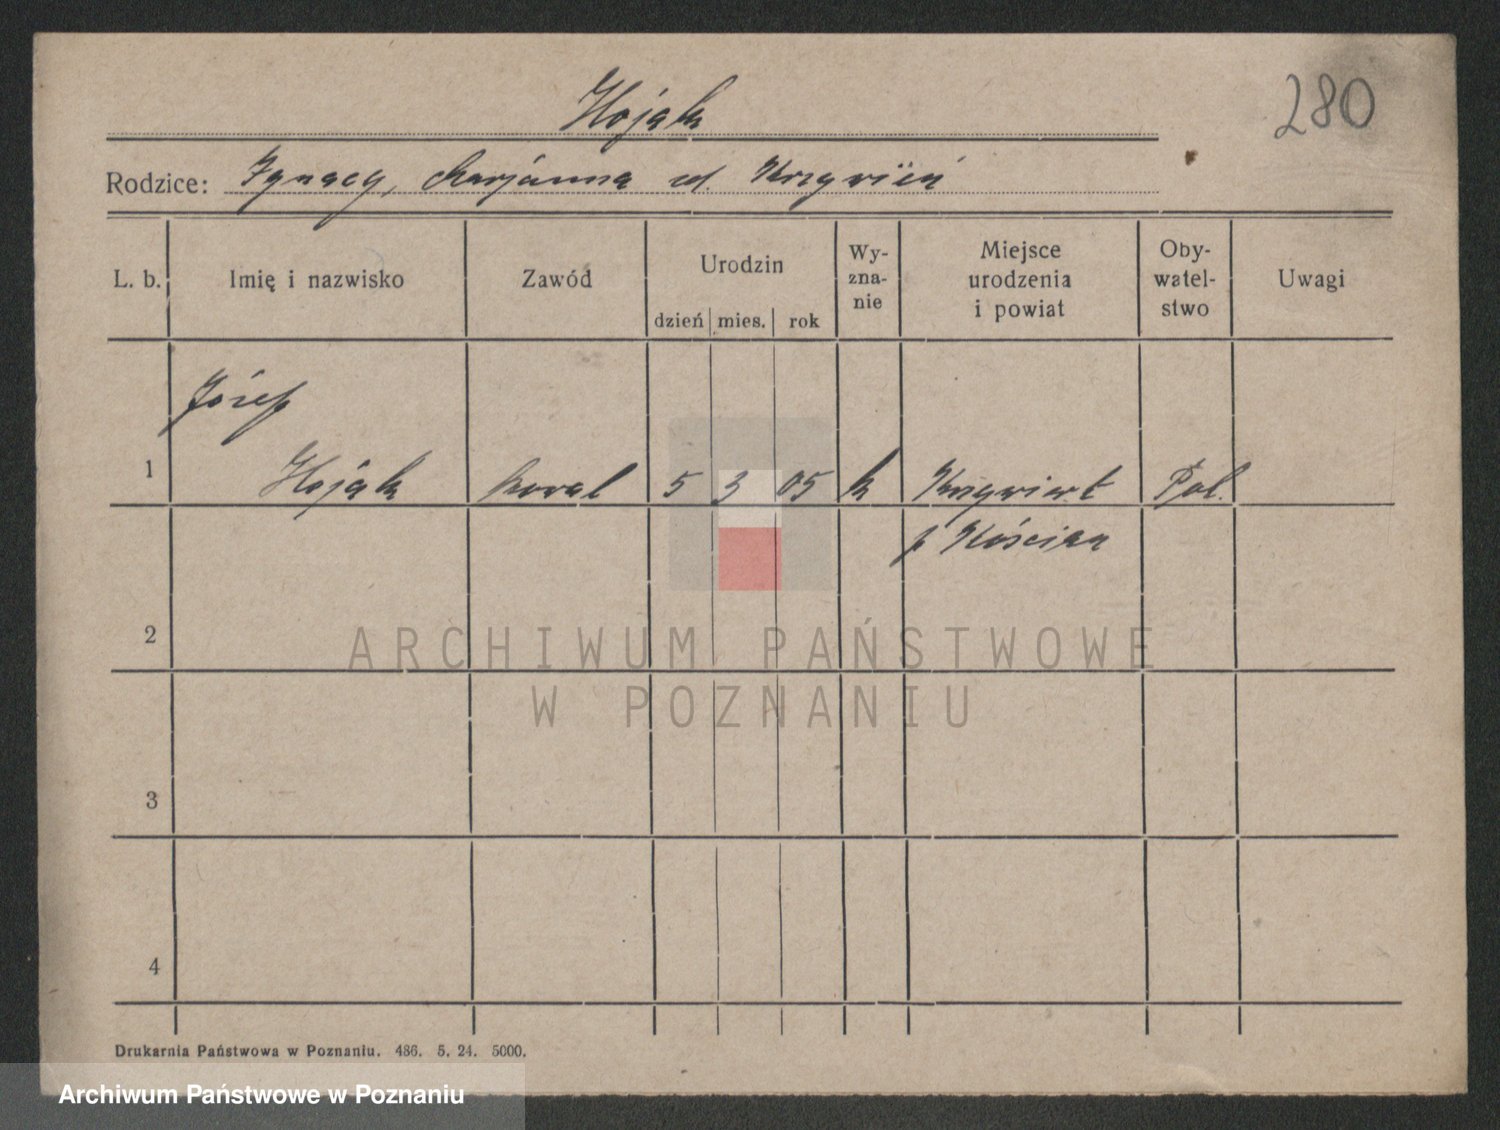 280
Hojak
Rodzice: Ignacy, Marjanna z d.
L. b. Imię i nazwisko Zawód Urodzin dzień mies. rok Wy-zna-nie Miejsce urodzenia i powiat Oby-watel-stwo Uwagi
Józef
1 Hojak kowal 5 3 05 k Pol.
p Kościan
2
ARCHIWUM PAŃSTWOWE
W POZNANIU
3
4
Drukarnia Państwowa w Poznaniu. 486. 5. 24. 5000.
Archiwum Państwowe w Poznaniu